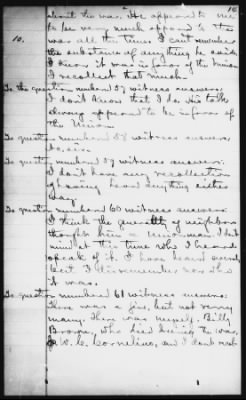 15
about the war. He appeared to me
to be very much opposed to the
10. war all the time. I can't remember
the substance of anything he said.
I know it was in favor of the Union
I recollect that much.
To the question numbered 57 witness answers:
I don't know that I do. His talk
always appeared to be in favor of
the Union.
To question numbered 58 witness answers:
No, sir.
To question numbered 59 witness answers:
I don't have any recollection
of having heard anything either
way.
To question numbered 60 witness answers:
I think the generality of neighbors
thought him a Union man. I
mind at this time who I heard
speak of it. I have heard
but I disremember now who
it was.
To question numbered 61 witness answers:
There was a few, but not very
many. There was myself, Billy
Brown, who died during the war,
W. C. Cornelius, and I don't